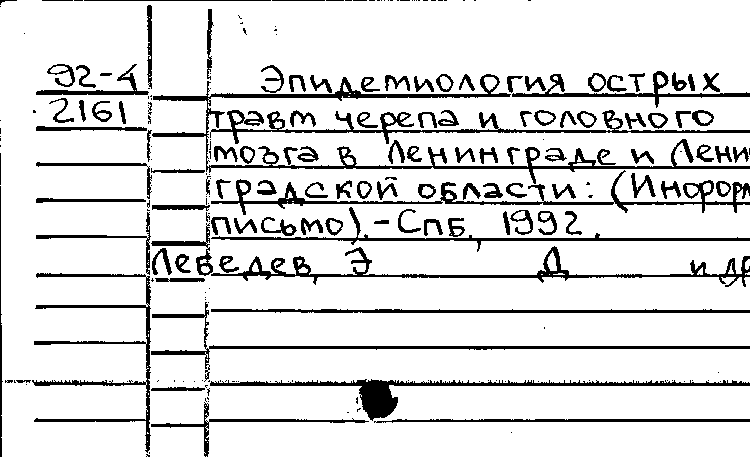 92-4 Эпидемиология острых
2161 травм черепа и головного
мозга в Ленинграде и Лени
градской области: (Информ
письмо).-Спб., 1992.
Лебедев, Э Д и др